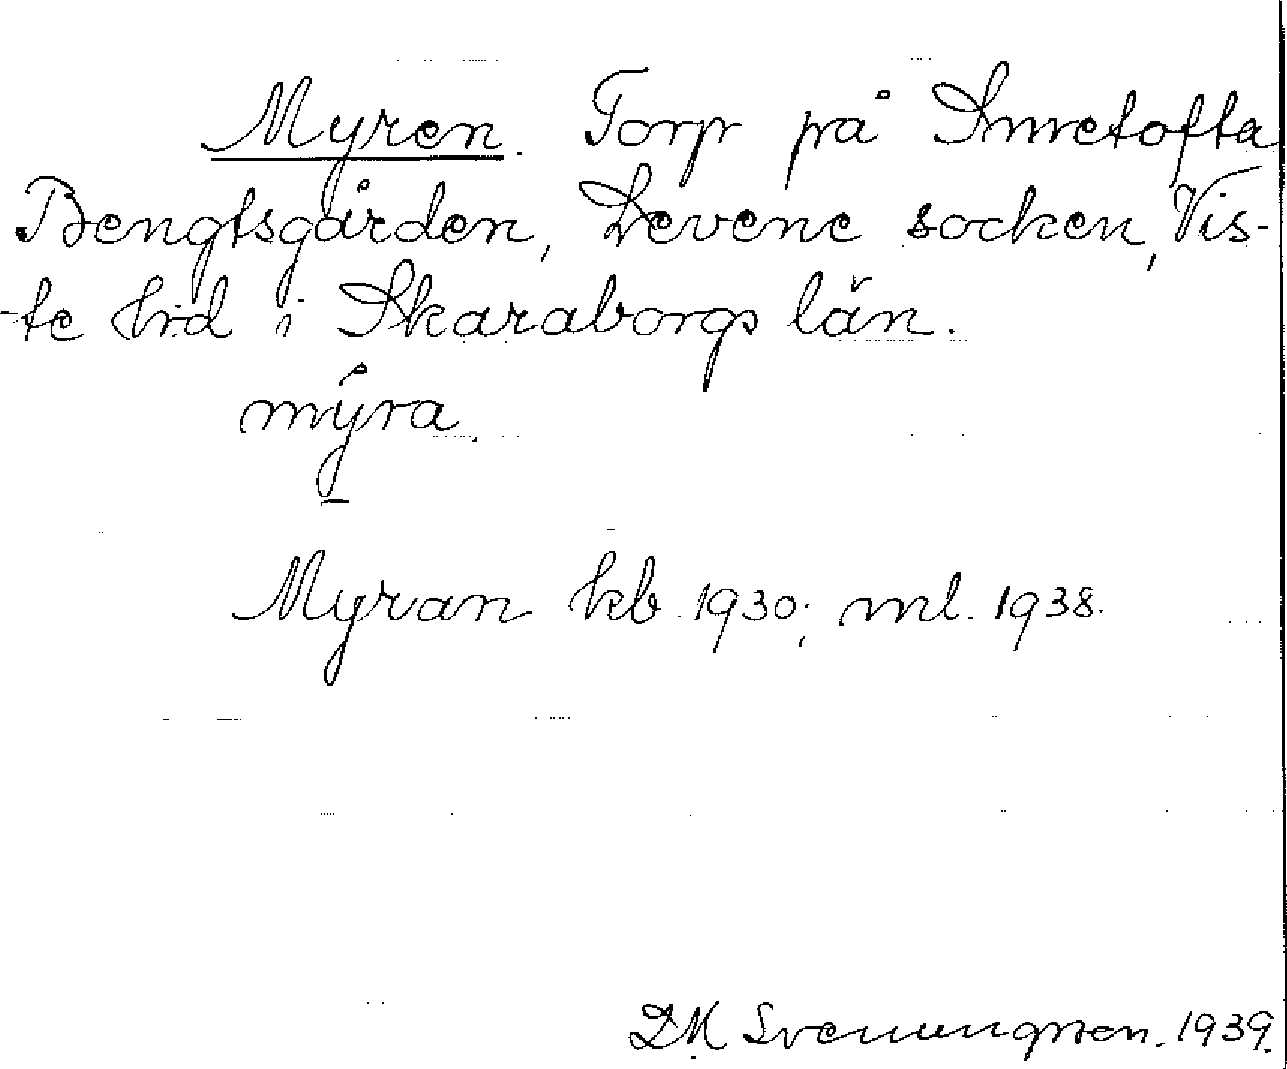 Myren. Torp på Smretofta
Bengtsgården, Levene socken, Vis-
-te hrd i Skaraborgs län.
mýra.
Myran kb 1930; ml. 1938.
DM Svenungsson. 1939.